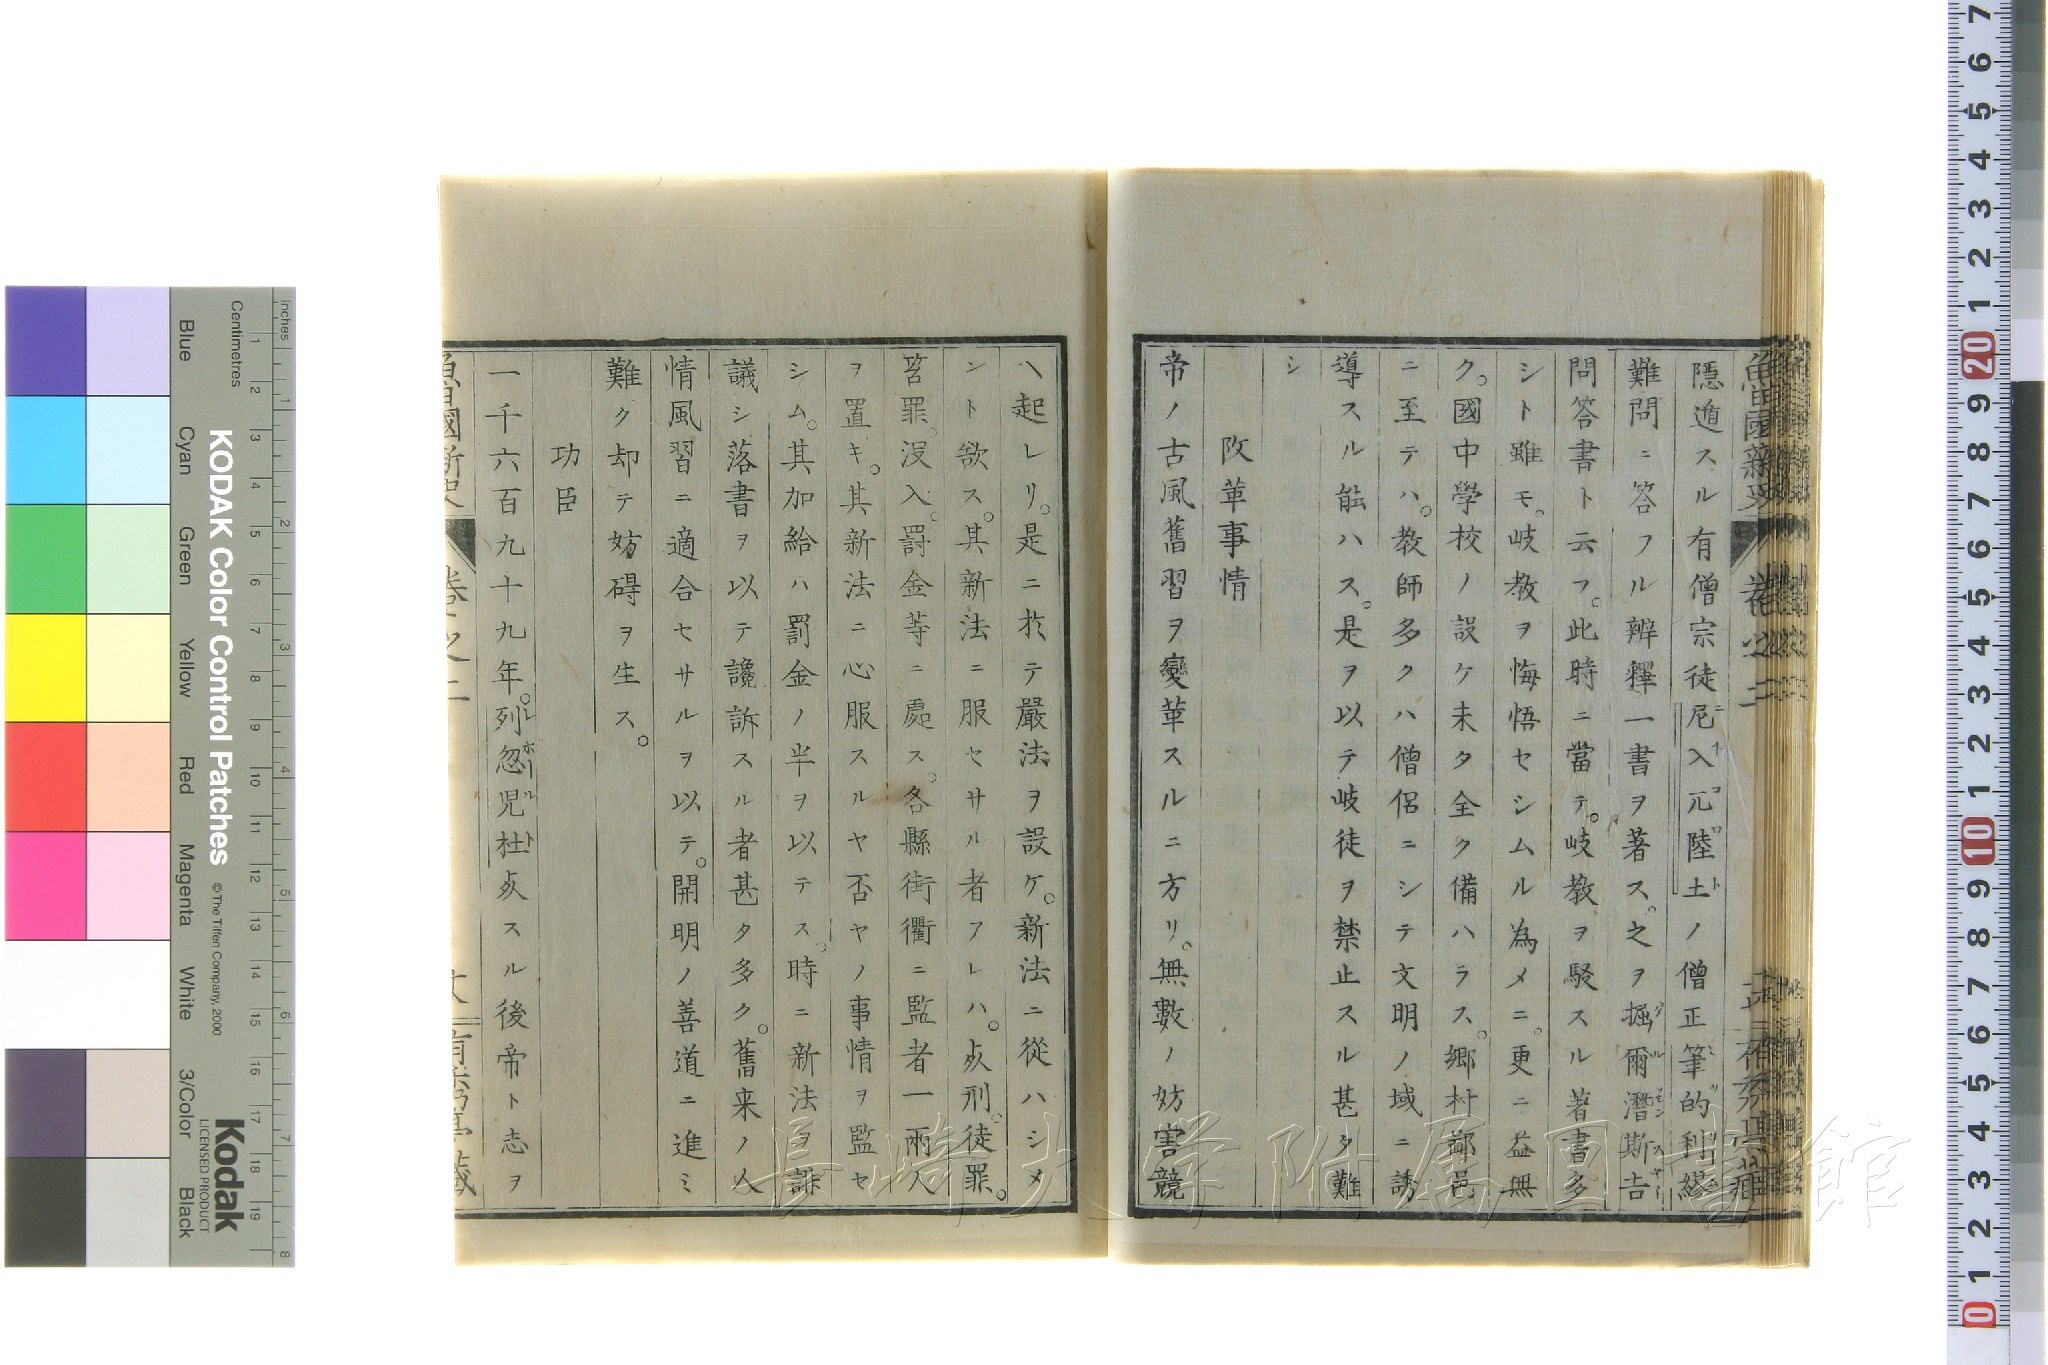 隱遁スル有僧宗徒尼入兀陸土ノ僧正筆的利繆
難問ニ答フル辨釋一書ヲ著ス。之ヲ掘爾潛斯吉
問答書ト云フ。此時ニ當テ。岐教ヲ駁スル著書多
シト雖モ。岐教ヲ悔悟セシムル為メニ。更ニ益無
ク。國中學校ノ設ケ未タ全ク備ハラス。郷村鄙邑
ニ至テハ。教師多クハ僧侶ニシテ文明ノ域ニ誘
導スル能ハス。是ヲ以テ岐徒ヲ禁止スル甚タ難
シ
改革事情
帝ノ古風舊習ヲ變革スルニ方リ。無數ノ妨害競
ヘ起レリ。是ニ於テ嚴法ヲ設ケ。新法ニ從ハシメ
ント欲ス。其新法ニ服セサル者アレハ。死刑。徒罪。
笞罪。沒入。罰金等ニ處ス。各縣街衢ニ監者一兩人
ヲ置キ。其新法ニ心服スルヤ否ヤノ事情ヲ監セ
シム。其加給ハ罰金ノ半ヲ以テス。時ニ新法ヲ誹
議シ落書ヲ以テ讒訴スル者甚タ多ク。舊来ノ人
情風習ニ適合セサルヲ以テ。開明ノ善道ニ進ミ
難ク却テ妨碍ヲ生ス。
功臣
一千六百九十九年。列忽児杜死スル後帝ト志ヲ
魯國新史 卷之二
長崎大学附属図書館
KODAK Color Control Patches
© The Tiffen Company, 2000
Kodak
LICENSED PRODUCT
Inches 1 2 3 4 5 6 7 8
Centimetres 1 2 3 4 5 6 7 8 9 10 11 12 13 14 15 16 17 18 19
Blue
Cyan
Green
Yellow
Red
Magenta
White
3/Color
Black
7 6 5 4 3 2 1 20 9 8 7 6 5 4 3 2 1 10 9 8 7 6 5 4 3 2 1 0